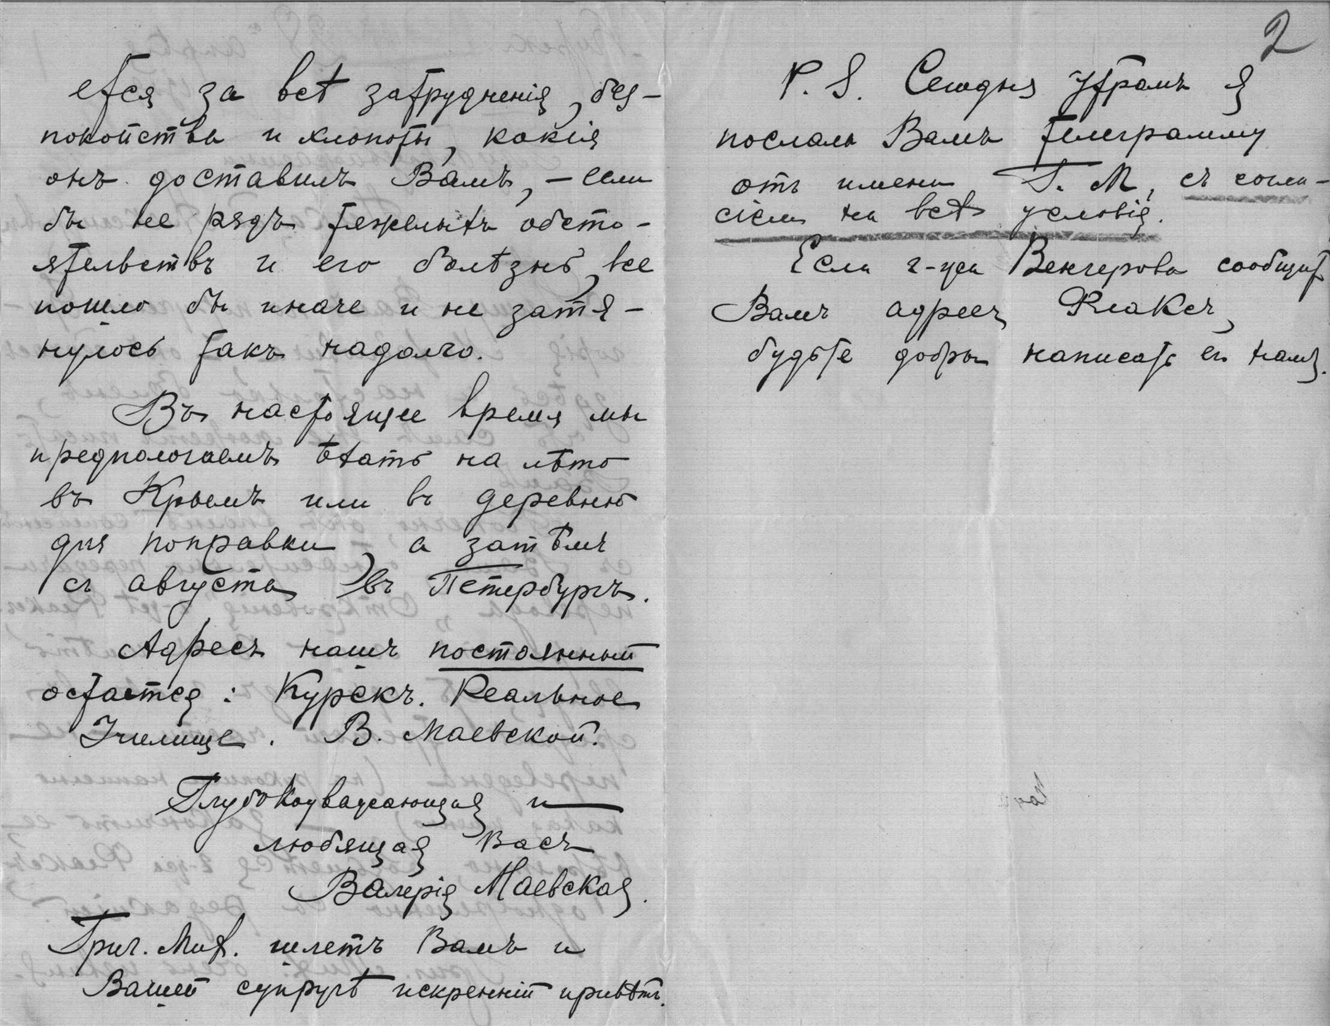 ется за всѣ затрудненія, без-
покойства и хлопоты, какія
онъ доставилъ Вамъ, — если
бы не рядъ тяжелыхъ обсто-
ятельствъ и его болѣзнь, все
пошло бы иначе и не затя-
нулось такъ надолго.
Въ настоящее время мы
предпологаемъ ѣхать на лѣто
въ Крымъ или въ деревню
для поправки, а затѣмъ
съ августа въ Петербургъ.
Адресъ нашъ постоянный
остается: Курскъ. Реальное
Училище. В. Маевской.
Глубокоуважающая и
любящая Васъ
Валерія Маевская.
Григ. Мих. шлетъ Вамъ и
Вашей супругѣ искренній привѣтъ.
2
P. S. Сегодня утромъ я
послала Вамъ телеграмму
отъ имени Г. М, съ согла-
сіемъ на всѣ условія.
Если г-жа Венгерова сообщитъ
Вамъ адресъ Флаксъ,
будьте добры написать его намъ.